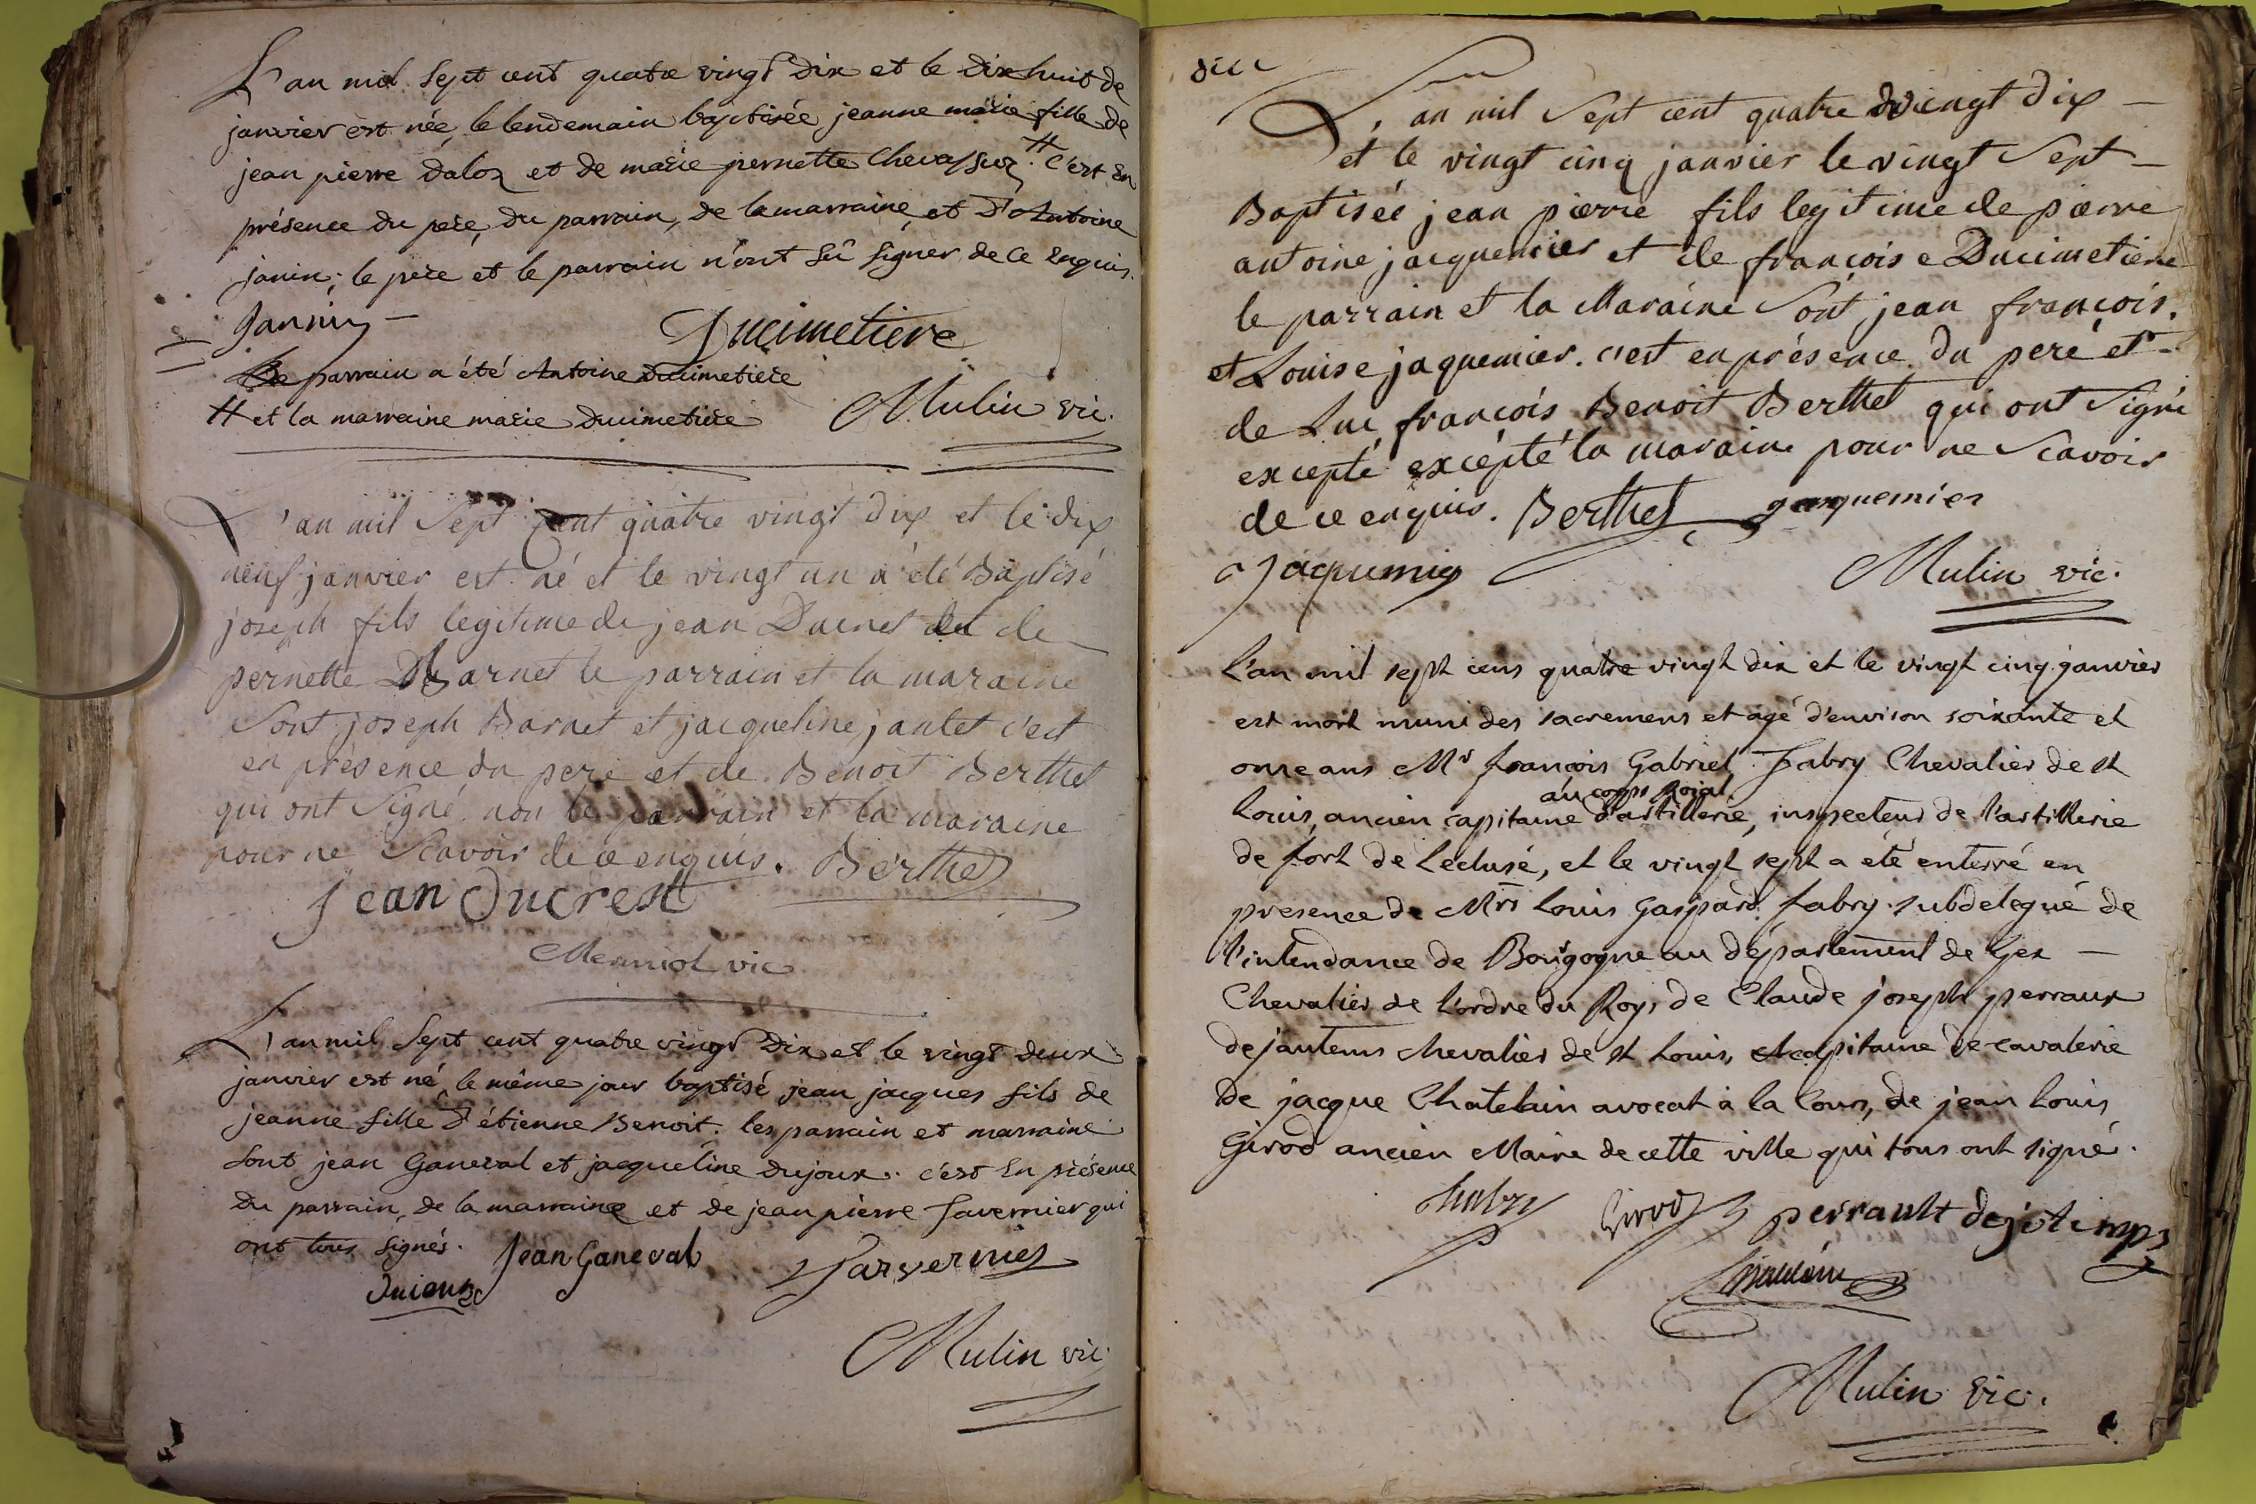 L'an mil sept cent quatre vingt dix et le dix huit de
janvier est née, le lendemain baptisée jeanne marie fille de
jean pierre daloz et de marie pernette Chevassuz. # c'est en
présence du père, du parrain, de la marraine et d'antoine
janin; le père et le parrain n'ont sû signer de ce enquis.
Jannin
Ducimetiere
Le parrain a été antoine Ducimetiere
# et la marraine marie ducimetiere
Mulin vic.
L'an mil Sept cent quatre vingt dix et le dix
neuf janvier est né et le vingt un a été Baptisé
joseph fils legitime de jean Ducret et de
pernette Barnet le parrain et la maraine
Sont joseph Barnet et jacqueline jantet c'est
en présence du pere et de Benoit Berthet
qui ont Signé non le parrain et la maraine
pour ne Scavoir de ce enquis. Berthet
jean Ducrest
Meyniol vic
L'an mil Sept cent quatre vingt Dix et le vingt deux
janvier est né, le même jour baptisé jean jacques fils de
jeanne fille d'étienne Benoit. les parrain et marraine
sont jean Ganeval et jacqueline dujoux. c'est en présence
du parrain, de la marraine et de jean pierre Tavernier qui
ont tous signés.
Jean Ganeval
Tarvernier
Dujoux
Mulin vic.
dix
L'an mil Sept cent quatre vingt dix
et le vingt cinq janvier le vingt Sept
Baptiséé jean pierre fils legitime de pierre
antoine jacquemier et de françoise Ducimetiere
le parrain et la Maraine Sont jean françois.
et Louise jaquemier. c'est en présence du pere et
de Luc françois Benoit Berthet qui ont Signé
excepté excépté la maraine pour ne Scavoir
de ce enquis. Berthet jacquemier
Jaquemier
Mulin vic.
L'an mil sept cens quatre vingt dix et le vingt cinq janvier
est mort muni des sacremens et agé d'environ soixante et
onze ans Mr françois Gabriel Fabry Chevalier de st
au corps roial
Louis, ancien capitaine d'artillerie, inspecteur de l'artillerie
de fort de Lecluse, et le vingt sept a eté enterré en
presence de Mrs Louis Gaspard fabry subdelegué de
l'intendance de Bourgogne au département de Gex
Chevalier de l'ordre du Roy, de Claude joseph perraux
de jautems chevalier de st Louis, et capitaine de cavalerie
de jacque Chatelain avocat à la Cour, de jean Louis
Girod ancien Maire de cette ville qui tous ont signé.
fabry
Girod
perrault dejotemps
Mulin vic.